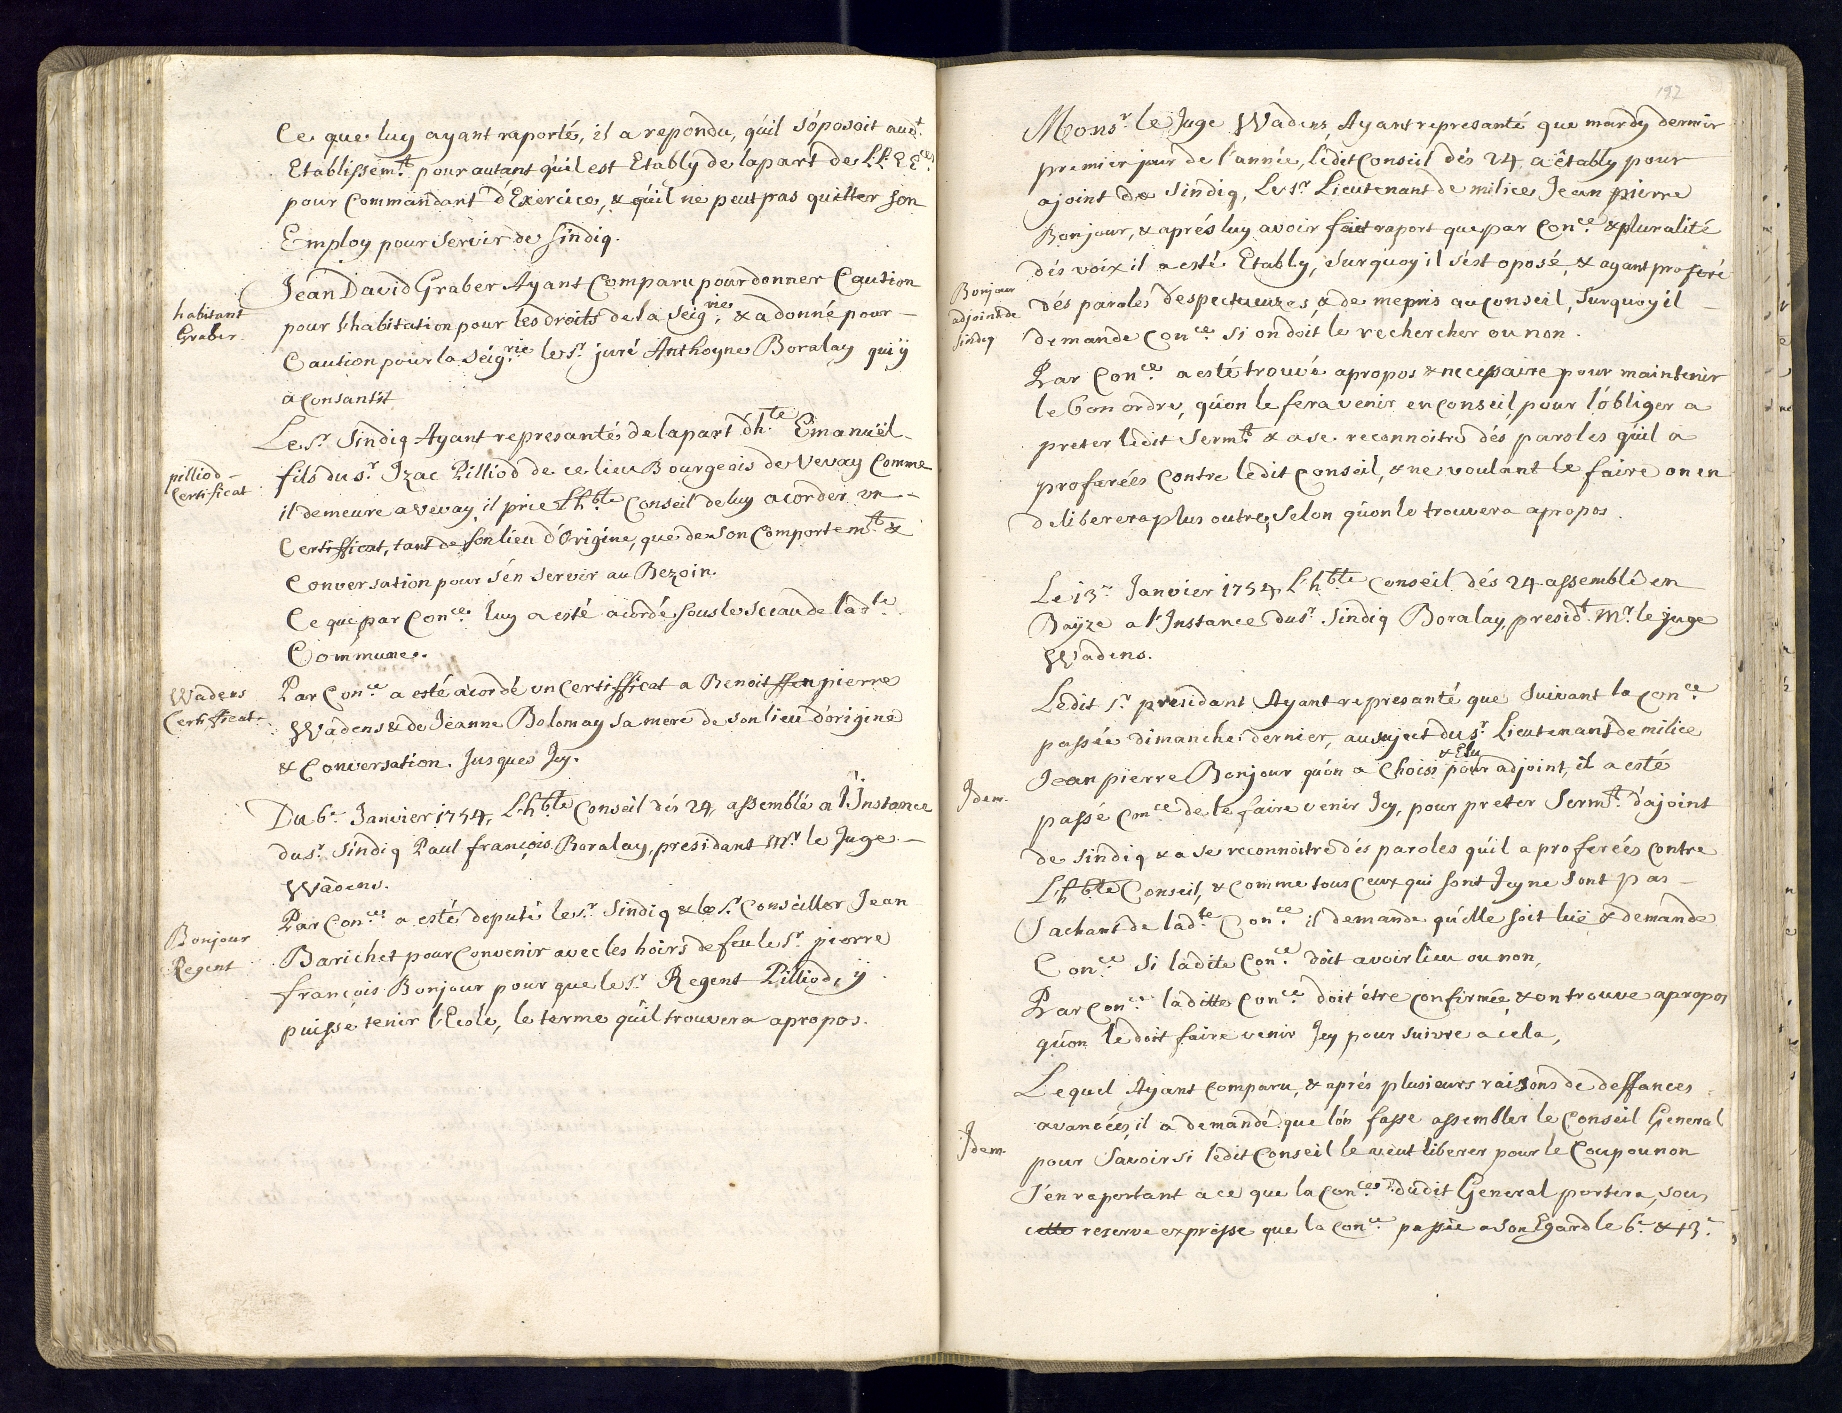 Ce que luy ayant raporté, il a repondu, qúil s'óposoit aud.t
Etablissem.t pour autant qúil est Etably de la part de LL. E E.ces
pour Commandant d'Exercice, & qúil ne peut pas quitter son
Employ pour servir de Sindiq.
habitant
Graber.
Jean David Graber Ayant Comparu pour donner Caution
pour l'habitation pour les droits de la Seig.rie, & a donné pour –
Caution pour la Séig.rie le S.r juré Anthoyne Boralay qui ÿ
a Consantit
pilliod –
Certificat
Le S.r Sindiq Ayant represantés de la part d'h.te Emanuël –
fils du S.r Izac Pilliod de ce lieu Bourgeois de Vevay Comme
il demeure a Vevay, il prie Lh.ble Conseil de luy acorder un –
Certifficat, tant de son lieu d'Origine, que de son Comportem.t &
Conversation pour s'én servir au Bezoin.
Ce que par Con.ce luy a esté acordé sous le Sceau de lad.te
Commune.
Wadens
Certifficat.
Par Con.ce a esté acordé un Certifficat a Benoit ffeu pierre
Wadens & de Jéanne Bolomay sa mere de son lieu d'origine
& Conversation. Jusques Jcy.
Du 6.e Janvier 1754, L'h.ble Conseil dés 24, assemblé a l'Jnstance
du S.r Sindiq Paul françois Boralay, presidant M.r le Juge –
Wadens.
Bonjour
Regent
Par Con.ce a esté deputé le S.r Sindiq & le S.r Conseiller Jean
Barichet pour Convenir avec les hoirs de feu le S.r pierre
françois Bonjour pour que le S.r Regent Pilliod, ÿ
puisse tenir l'Ecole, le terme qúil trouvera apropos.
192
Mons.r le Juge Wadens, Ayant represanté que mardy dernier
premier jour de l'année, lédit Conseil dés 24, a étably pour
ajoint de Sindiq, Le S.r Lieutenant de milice Jean pierre
Bonjour, & aprés luy avoir fait raport que par Con.ce & pluralité
dés voix il a esté Etably, surquoy il s'ést oposé, & ayant proferé
Bonjour
adjoint de
Sindiq
dés paroles despectueuzes & de mepris au Conseil, surquoy il –
demande Con.ce si on doit le rechercher ou non.
Par Con.ce a esté trouvé apropos & necessaire pour maintenir
le bon ordre, qúon le fera venir en Conseil pour l'óbliger a
preter lédit Serm.t & a se reconnoitre dés paroles qúil a
proferéés Contre lédit Conseil, & ne voulant le faire on en
deliberera plus outre, selon qúon le trouvera apropos.
Le 13.e Janvier 1754, L'h.ble Conseil dés 24 assemblé en
Bayze a l'Jnstance du S.r Sindiq Boralay, presid.t M.r le juge
Wadens.
Lédit S.r presidant Ayant represanté que suivant la Con.ce
passée dimanche dernier, au sujet du S.r Lieutenant de milice
& Elu
Jean pierre Bonjour qúon a Choisi pour adjoint, il a esté
Jdem.
passé Con.ce de le faire venir Jcy, pour preter Serm.t d'ajoint
de Sindiq & a se reconnoitre dés paroles qúil a proferéés Contre
L'h.ble Conseil, & comme tous Ceux qui sont Jcy ne sont pas –
Sachant de lad.te Con.ce il demande qúelle soit lüe & demande
Con.ce si ladite Con.ce doit avoir lieu ou non,
Par Con.ce laditte Con.ce doit étre confirmée & on trouve apropos
qúon le doit faire venir Jcy pour suivre a cela,
Lequel Ayant Comparu, & aprés plusieurs raisons de deffances
avancéés, il a demandé que l'ón fasse assembler le Conseil General
Jdem.
pour savoir si lédit Conseil le veut liberer pour le Coup ou non
S'en raportant a ce que la Con.ce dudit General portera, sous
cette reserve exprésse que la Con.ce passée a son Egard le 6.e & 13.e